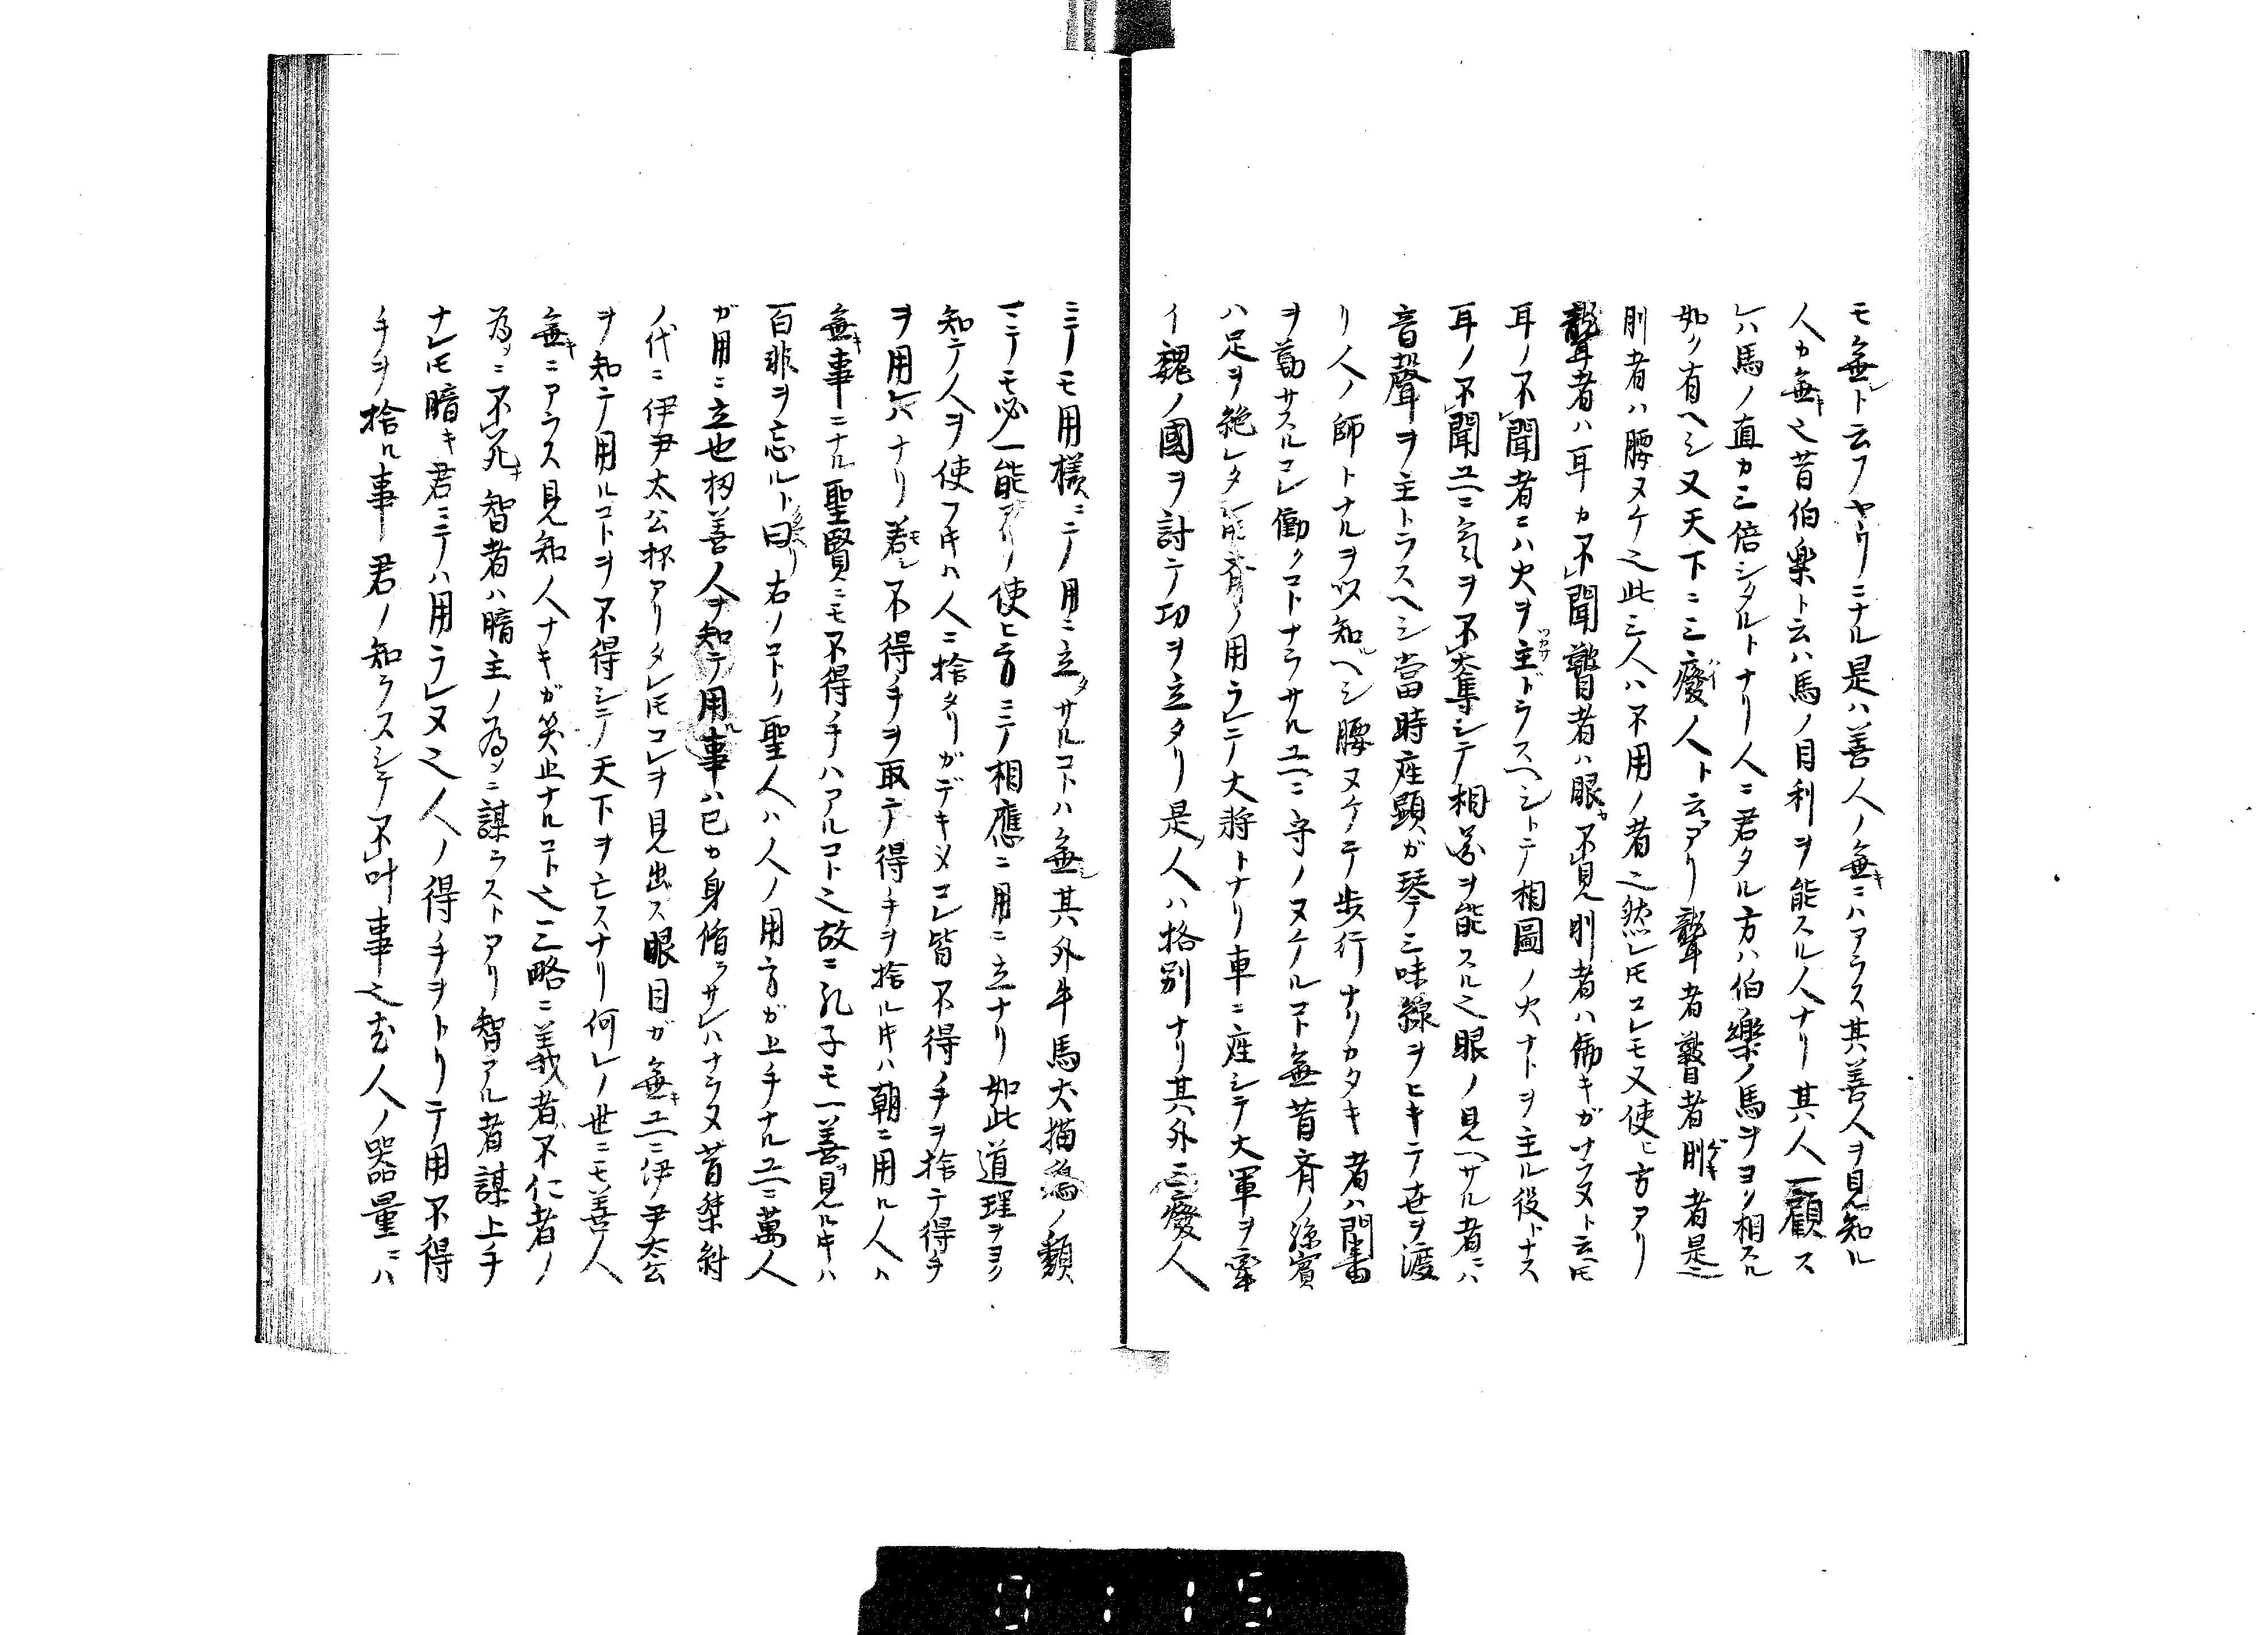 モ無シト云フヤウニナル是ハ善人ノ無キニハアラス其善人ヲ見知ル
人カ無キ之昔伯楽ト云ハ馬ノ目利ヲ能スル人ナリ其人一顧ス
レハ馬ノ直カ三倍シタルトナリ人ニ君タル方ハ伯樂ノ馬ヲヨク相スル
如ク有ヘシ又天下ニ三癈人ト云アリ聾者瞽者刖者是之
刖者ハ腰ヌケ之此三人ハ不用ノ者之然レ𪜈コレモ又使ヒ方アリ
聾者ハ耳カ不聞瞽者ハ眼カ不見刖者ハ働キガナラヌト云𪜈
耳ノ不聞者ニハ火ヲ主ドラスヘシトテ相圖ノ火ナトヲ主ル役トナス
耳ノ不聞ユヘニ氣ヲ不奪シテ相圖ヲ能スル之眼ノ見ヘサル者ニハ
音聲ヲ主トラスヘシ當時座頭ガ琴三味線ヲヒキテ世ヲ渡
リ人ノ師トナルヲ以知ルヘシ腰ヌケテ歩行ナリカタキ者ハ門番
ヲ勤サスルコレ働クコトナラサルユヘニ守ノヌケルコト無昔齊ノ孫賓
ハ足ヲ絶レタ 用ラレテ大將トナリ車ニ座シテ大軍ヲ率
イ魏ノ國ヲ討テ功ヲ立タリ是人ハ格別ナリ其外三癈人
ニテモ用樣ニテ用ニ立タサルコトハ無シ其外牛馬犬猫 ノ類
ニテモ必一能アリ使ヒ方ニテ相應ニ用ニ立ナリ如此道理ヲヨク
知テ人ヲ使フ𪜈ハ人ニ捨タリガデキヌコレ皆不得手ヲ捨テ得手
ヲ用レハナリ若シ不得手ヲ取テ得手ヲ捨ル𪜈ハ朝ニ用ル人ハ
無キ事ニナル聖賢ニモ不得手ハアルコト之故ニ孔子モ一善ヲ見ル𪜈ハ
百非ヲ忘ルト曰ヘリ右ノコトク聖人ハ人ノ用方ガ上手ナルユヘニ萬人
ガ用ニ立也扨善人ヲ知テ用ル事ハ己カ身脩ラサレハナラヌ昔桀紂
ノ代ニ伊尹太公杯アリタレ𪜈コレヲ見出ス眼目ガ無キユヘニ伊尹太公
ヲ知テ用ルコトヲ不得シテ天下ヲ亡スナリ何レノ世ニモ善人
無キニアラス見知人ナキガ笑止ナルコト之三略ニ義者ハ不仁者ノ
為ニ不死智者ハ暗主ノ為ニ謀ラストアリ智アル者謀上手
ナレ𪜈暗キ君ニテハ用ラレヌ之人ノ得手ヲトリテ用不得
手ヲ捨ル事君ノ知ラスシテ不叶事之去人ノ器量ニハ